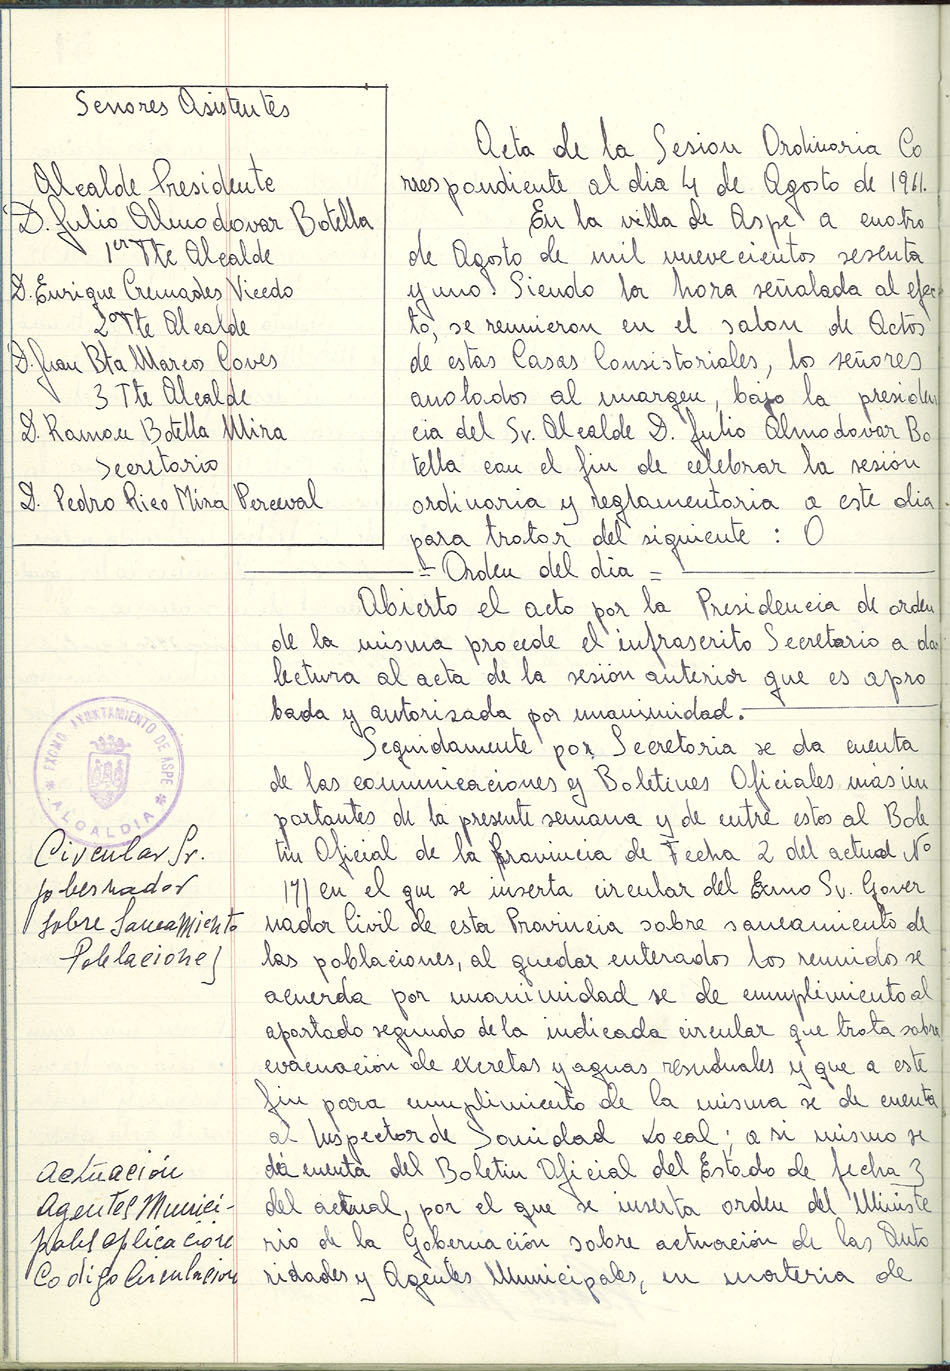 Señores Asistentes
Alcalde Presidente
D. Julio Almodovar Botella
1er Tte Alcalde
D. Enrique Cremades Vicedo
2º Tte Alcalde
D. Juan Bta Marco Coves
3 Tte Alcalde
D. Ramon Botella Mira
Secretario
D. Pedro Rico Mira Perceval
Acta de la Sesion Ordinaria Co
rrespondiente al dia 4 de Agosto de 1961.
En la villa de Aspe a cuatro
de Agosto de mil nuevecientos sesenta
y uno. Siendo la hora señalada al efec
to, se reunieron en el salon de Actos
de estas Casas Consistoriales, los señores
anotados al margen, bajo la presiden
cia del Sr. Alcalde D. Julio Almodovar Bo
tella con el fin de celebrar la sesión
ordinaria y reglamentaria a este dia
para tratar del siguiente : O
= Orden del dia =
Abierto el acto por la Presidencia de orden
de la misma procede el infrascrito Secretario a dar
lectura al acta de la sesión anterior que es apro
bada y autorizada por unanimidad.
Seguidamente por Secretaria se da cuenta
de las comunicaciones y Boletines Oficiales más im
portantes de la presente semana y de entre estos al Bole
tin Oficial de la Provincia de Fecha 2 del actual Nº
171 en el que se inserta circular del Exmo Sr. Gover
nador Civil de esta Provincia sobre saneamiento de
las poblaciones, al quedar enterados los reunidos se
acuerda por unanimidad se de cumplimiento al
apartado segundo de la indicada circular que trata sobre
evacuación de excretas y aguas residuales y que a este
fin para cumplimiento de la misma se de cuenta
al Inspector de Sanidad Local; a si mismo se
dá cuenta del Boletin Oficial del Estado de fecha 3
del actual, por el que se inserta orden del Ministe
rio de la Gobernación sobre actuación de las Auto
ridades y Agentes Municipales, en materia de
EXCMO AYUNTAMIENTO DE ASPE
* ALCALDIA *
Circular Sr.
gobernador
sobre Saneamiento
Poblaciones
Actuación
Agentes Munici-
pales aplicación
Codigo Circulacion